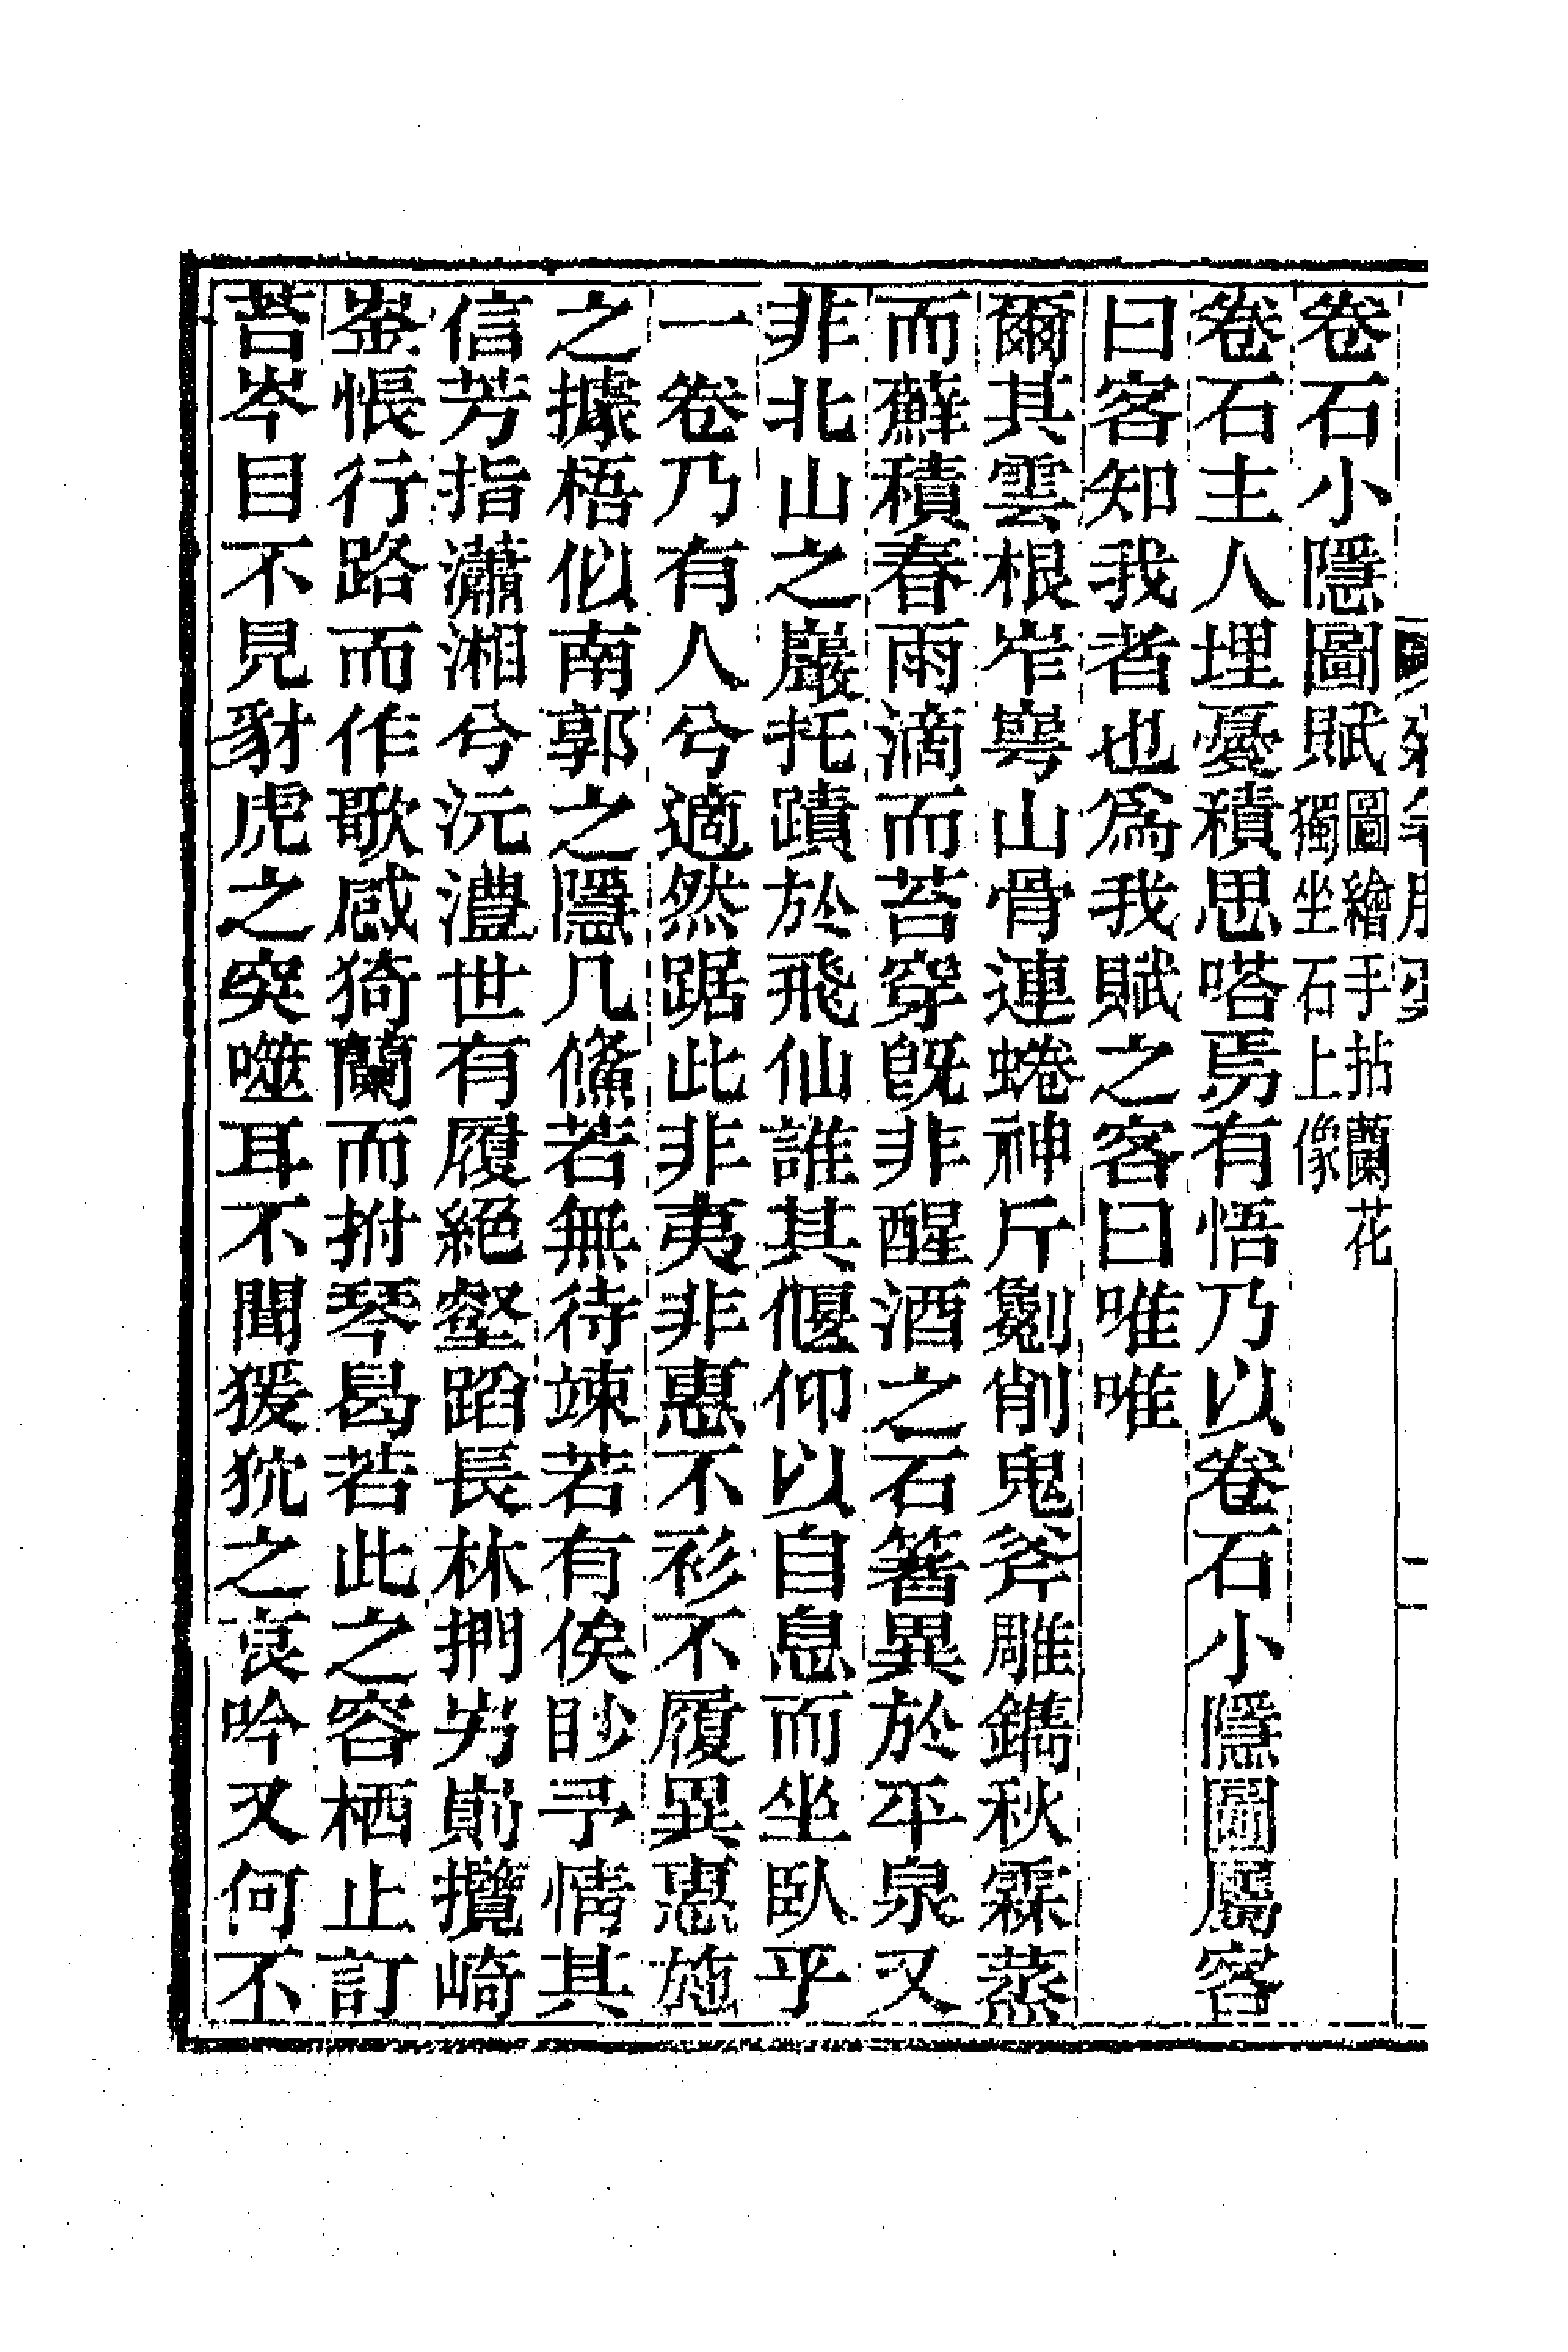 卷石小隱圖賦圖繪手拈蘭花獨坐石上像
卷石主人埋憂積思嗒焉有悟乃以卷石小隱圖屬客
曰客知我者也爲我賦之客曰唯唯
爾其雲根岝崿山骨連蜷神斤劖削鬼斧雕鐫秋霖蒸
而蘚積春雨滴而苔穿旣非醒酒之石箸異於平泉又
非北山之巖托蹟於飛仙誰其偃仰以自息而坐臥乎
一卷乃有人兮適然踞此非夷非惠不衫不履異惠施
之據梧似南郭之隱几翛若無待竦若有俟眇予情其
信芳指瀟湘兮沅澧世有履絕壑蹈長林捫岝崱攬崎
崟悵行路而作歌感猗蘭而拊琴曷若此之容栖止訂
苔岑目不見豺虎之突噬耳不聞猨狖之哀吟又何不